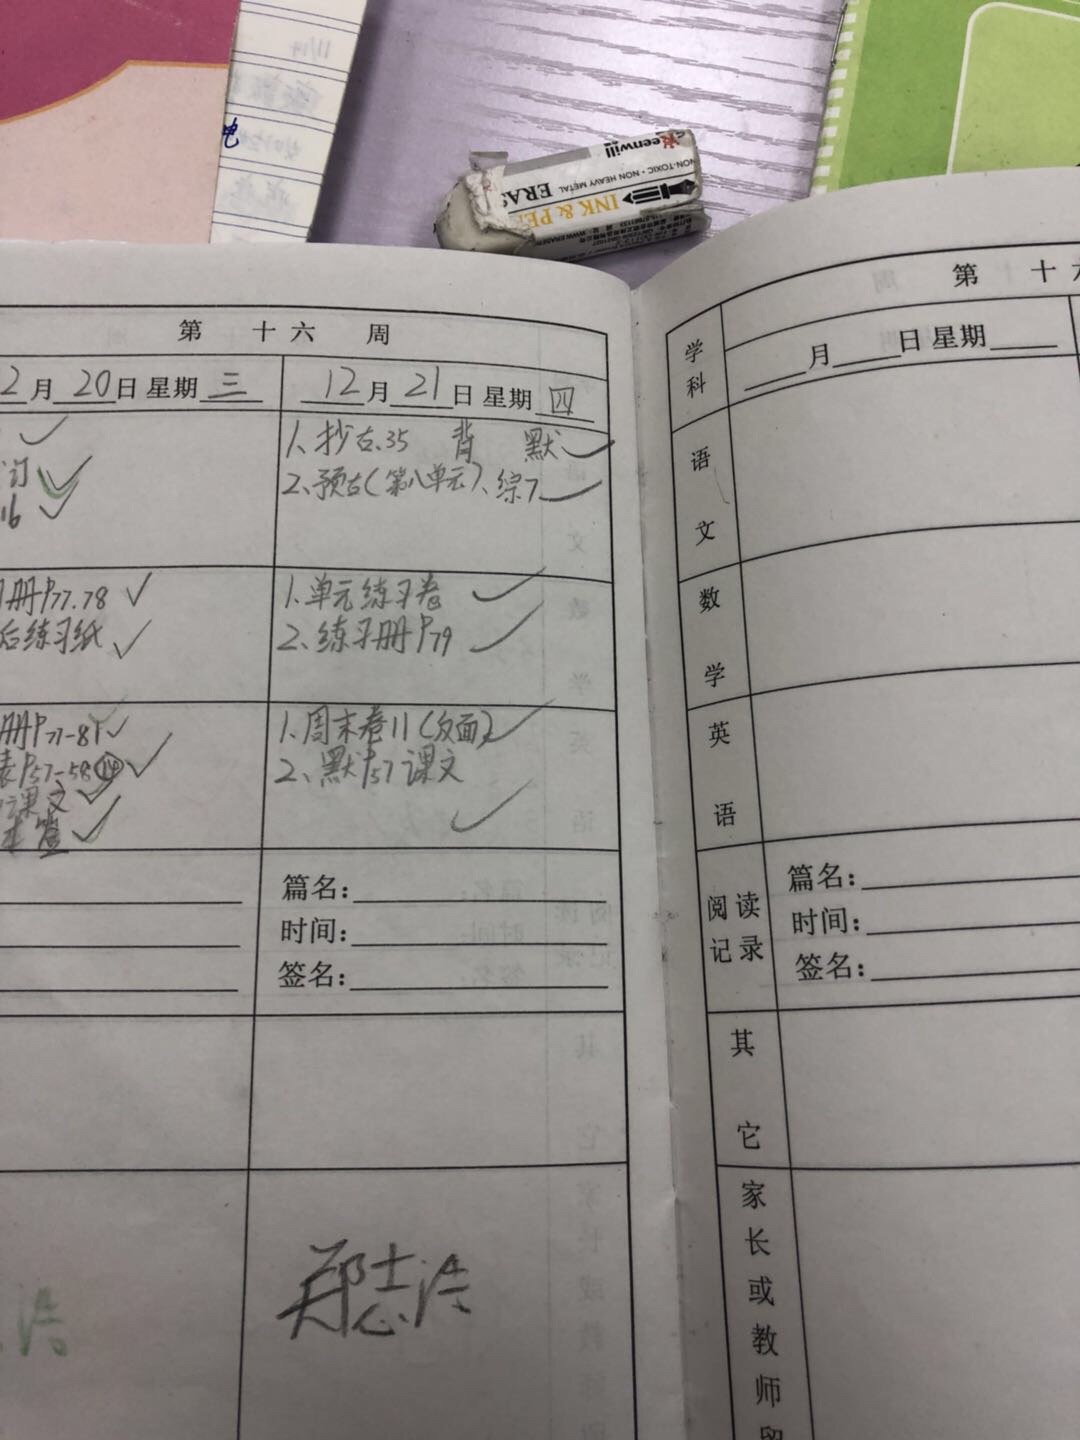 11/14
Keenwill
NON-TOXIC · NON HEAVY METAL
INK & PE
ERAS
第 十六 周
2月20日 星期三
12月21日 星期四
订
16
1、抄古.35 背 默
2、预古(第八单元)、综7
册P77.78
后练习纸
1、单元练习卷
2、练习册P79
册P71-81
P57-58
课文
签
1、周末卷11(反面)
2、默P57课文
篇名:
时间:
签名:
郑志浩
浩
第 十六
学科
月 日 星期
语文
数学
英语
阅读记录
篇名:
时间:
签名:
其它
家长或教师留